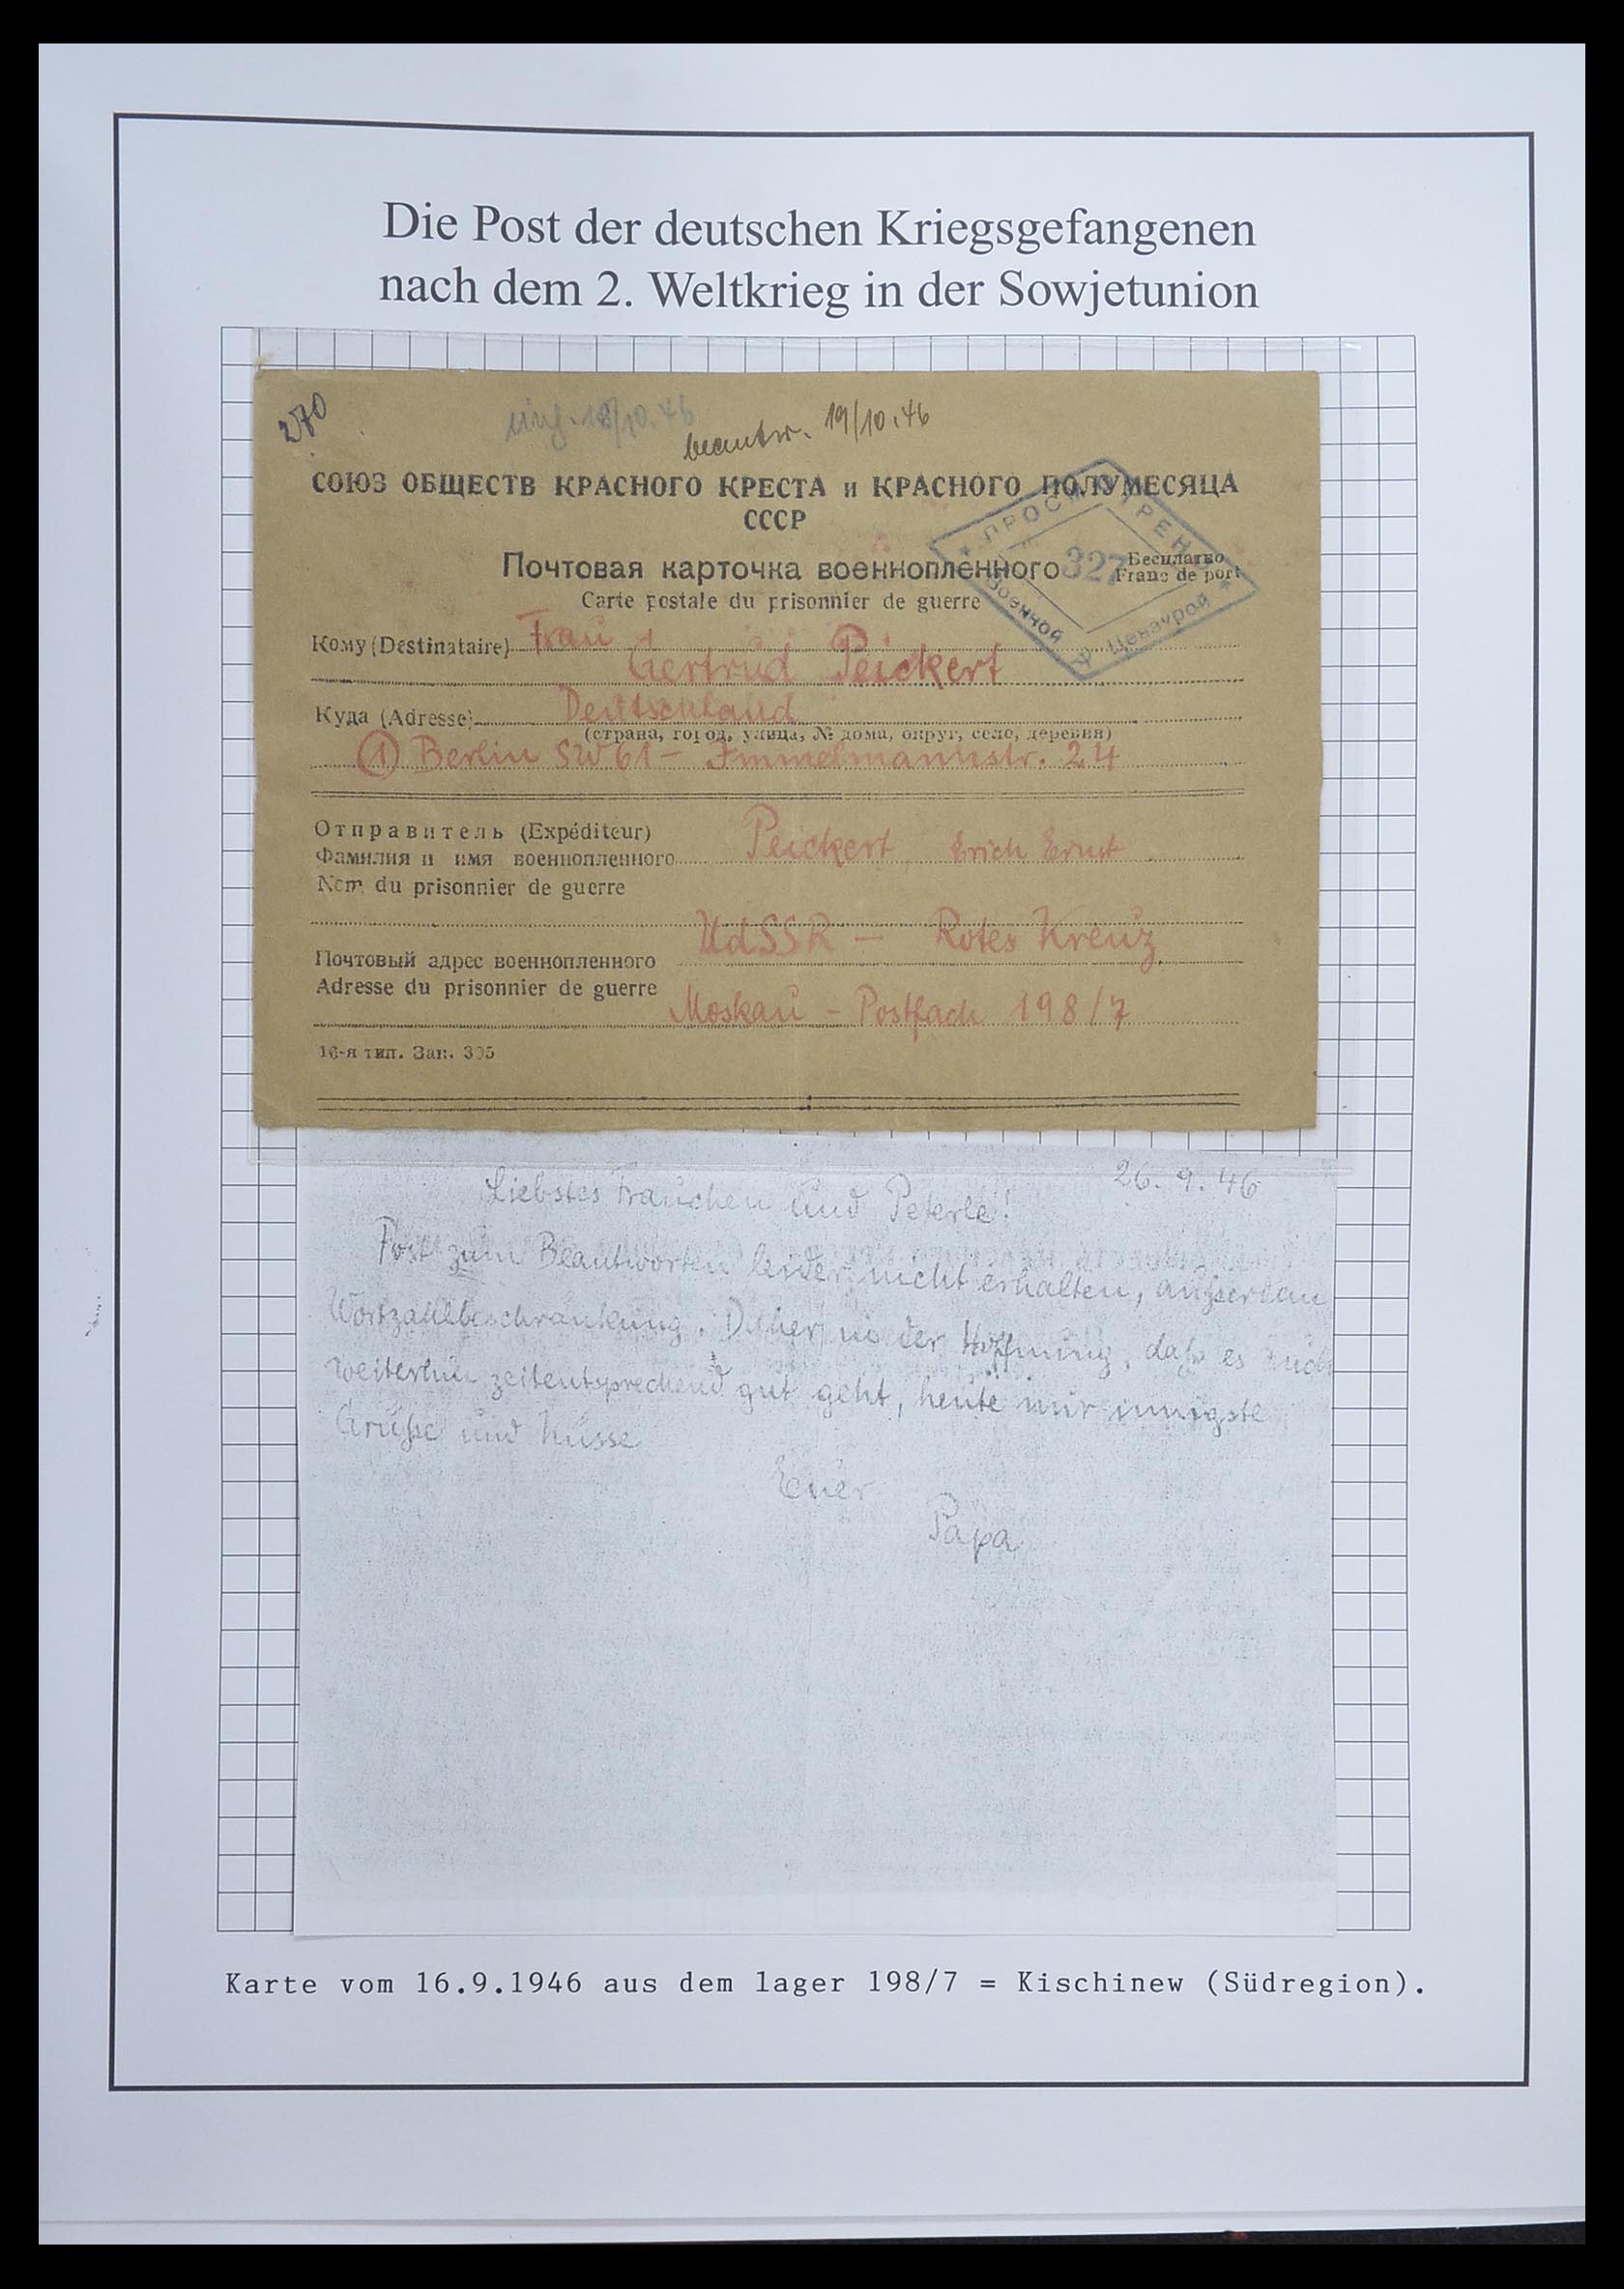 Die Post der deutschen Kriegsgefangenen
nach dem 2. Weltkrieg in der Sowjetunion
270
eing. 18/10.46
beantw. 19/10.46
СОЮЗ ОБЩЕСТВ КРАСНОГО КРЕСТА и КРАСНОГО ПОЛУМЕСЯЦА
СССР
Почтовая карточка военнопленного
Бесплатно
Franc de port
Carte postale du prisonnier de guerre
ПРОСМОТРЕНО
327
Военной Цензурой
Кому (Destinataire) Frau
Gertrud Peickert
Куда (Adresse) Deutschland
(страна, город, улица, № дома, округ, село, деревня)
① Berlin SW 61 - Immelmannstr. 24
Отправитель (Expéditeur)
Фамилия и имя военнопленного Peickert, Erich Ernst
Nom du prisonnier de guerre
UdSSR - Rotes Kreuz
Почтовый адрес военнопленного
Adresse du prisonnier de guerre
Moskau - Postfach 198/7
16-я тип. Зак. 305
26.9.46
Liebstes Frauchen und Peterle!
Post zum Beantworten leider nicht erhalten, außerdem
Wortzahlbeschränkung. Daher in der Hoffnung, daß es Euch
weiterhin zeitentsprechend gut geht, heute nur innigste
Grüße und Küsse
Euer
Papa
Karte vom 16.9.1946 aus dem lager 198/7 = Kischinew (Südregion).